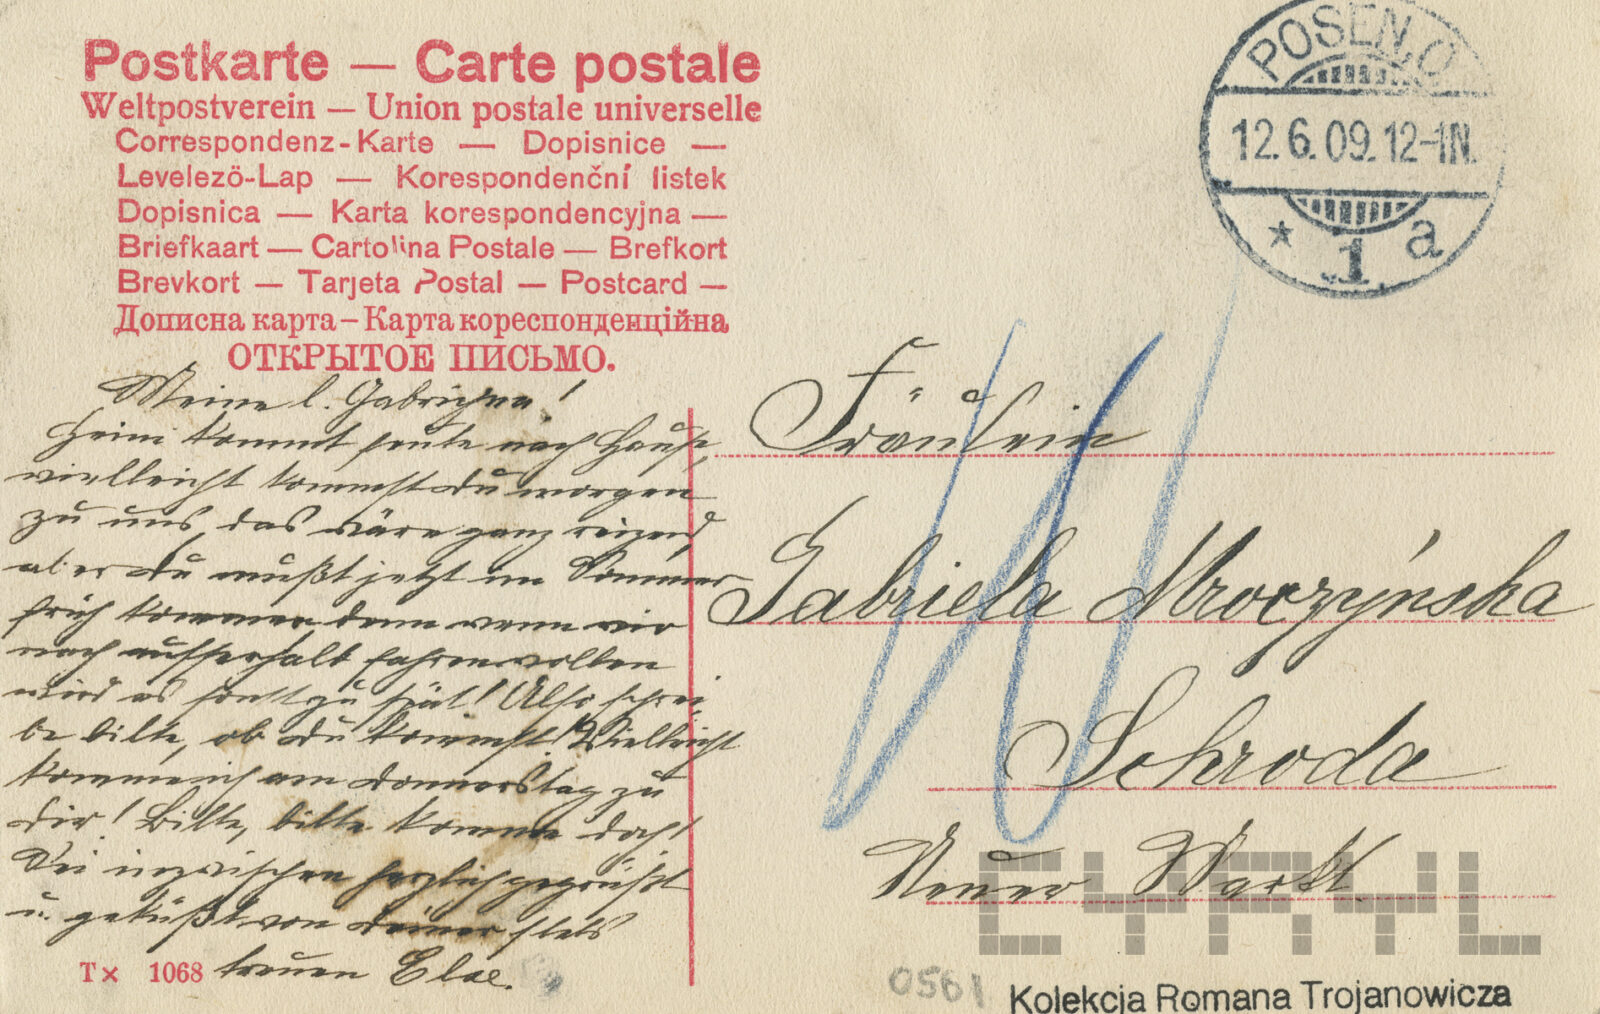 Postkarte — Carte postale
Weltpostverein — Union postale universelle
Correspondenz-Karte — Dopisnice —
Levelezö-Lap — Korespondenční listek
Dopisnica — Karta korespondencyjna —
Briefkaart — Cartolina Postale — Brefkort
Brevkort — Tarjeta Postal — Postcard —
Дописна карта — Карта кореспонденційна
ОТКРЫТОЕ ПИСЬМО.
POSEN.O
12.6.09.12-1N.
* 1 a
Meine l. Gabrichna!
Heini kommt heute nach Hause,
vielleicht kommst du morgen
zu uns, das wäre ganz reizend,
aber du mußt jetzt im Sommer
früh kommen, denn wenn wir
noch außerhalb fahren wollen
wird es sonst zu spät! Also schrei-
be bitte, ob du kommst! Vielleicht
komme ich am Donnerstag zu
dir! Bitte, bitte komme doch!
Sei inzwischen herzlich gegrüßt
u. geküßt von deiner stets
treuen Else.
Fräulein
Gabriela Mroczyńska
Schroda
Neuer Markt
T× 1068
0561
CYRYL
Kolekcja Romana Trojanowicza